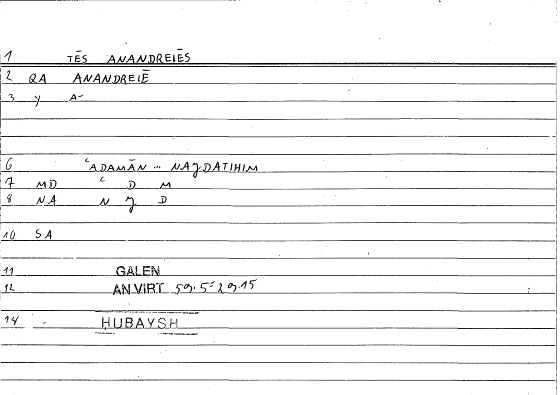 1 TĒS ANANDREIĒS
2 QA ANANDREIĒ
3 y A-
6 ʿADAMĀN ... NAǦDATIHIM
7 MD ʿ D M
8 NA N Ǧ D
10 SA
11 GALEN
12 AN.VIRT 59.5 = 29.15
14 - HUBAYSH